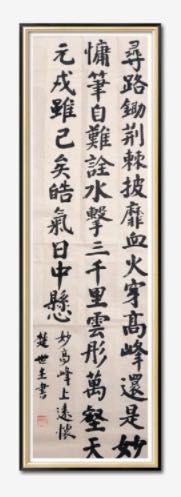 尋路鋤荆棘披靡血火穿高峰還是妙
慵筆自難詮水擊三千里雲彤萬壑天
元戎雖已矣皓氣日中懸
妙高峰上遠懷
楚世圭書